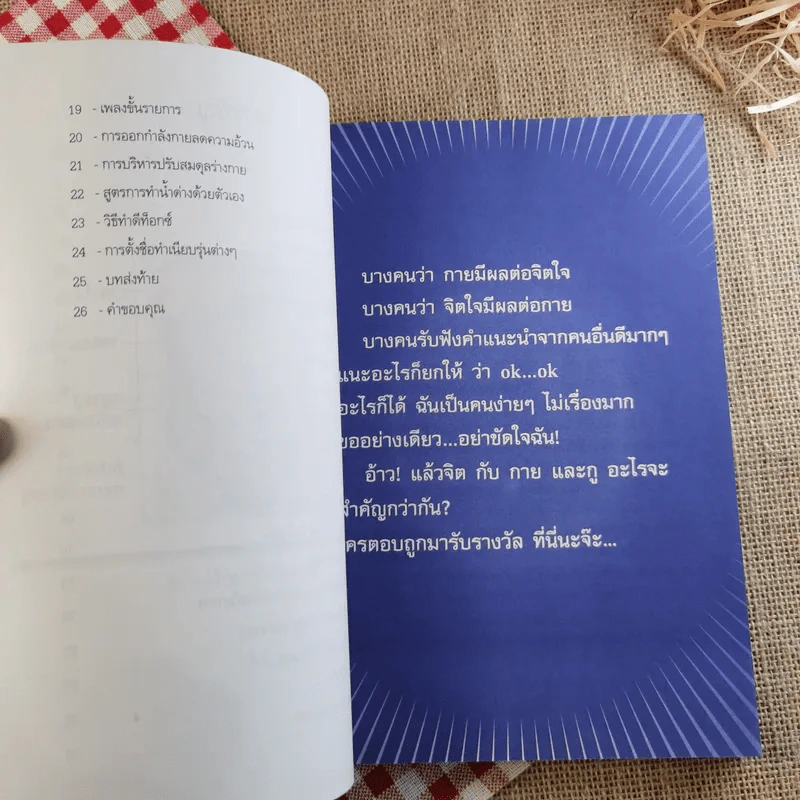 19 - เพลงขั้นรายการ
20 - การออกกำลังกายลดความอ้วน
21 - การบริหารปรับสมดุลร่างกาย
22 - สูตรการทำน้ำด่างด้วยตัวเอง
23 - วิธีทำดีท็อกซ์
24 - การตั้งชื่อทำเนียบรุ่นต่างๆ
25 - บทส่งท้าย
26 - คำขอบคุณ
บางคนว่า กายมีผลต่อจิตใจ
บางคนว่า จิตใจมีผลต่อกาย
บางคนรับฟังคำแนะนำจากคนอื่นดีมากๆ
แนะอะไรก็ยกให้ ว่า ok...ok
อะไรก็ได้ ฉันเป็นคนง่ายๆ ไม่เรื่องมาก
ขออย่างเดียว...อย่าขัดใจฉัน!
อ้าว! แล้วจิต กับ กาย และกู อะไรจะ
สำคัญกว่ากัน?
ใครตอบถูกมารับรางวัล ที่นี่นะจ๊ะ...